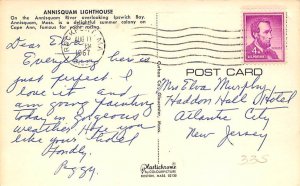 ANNISQUAM LIGHTHOUSE
On the Annisquam River overlooking Ipswich Bay.
Annisquam, Mass. is a delightful summer colony on
Cape Ann, famous for yacht racing.
Dear El
Everything here is
just perfect. I
love it and
am going painting
today in gorgeous
weather. Hope you
like your hotel
Fondly,
Peggy
AUG 11
1967
4¢
POST CARD
Mrs Elva Murphy
Haddon Hall Hotel
Atlantic City
New Jersey
335
Plastichrome
COLOURPICTURE
BOSTON, MASS. 02130